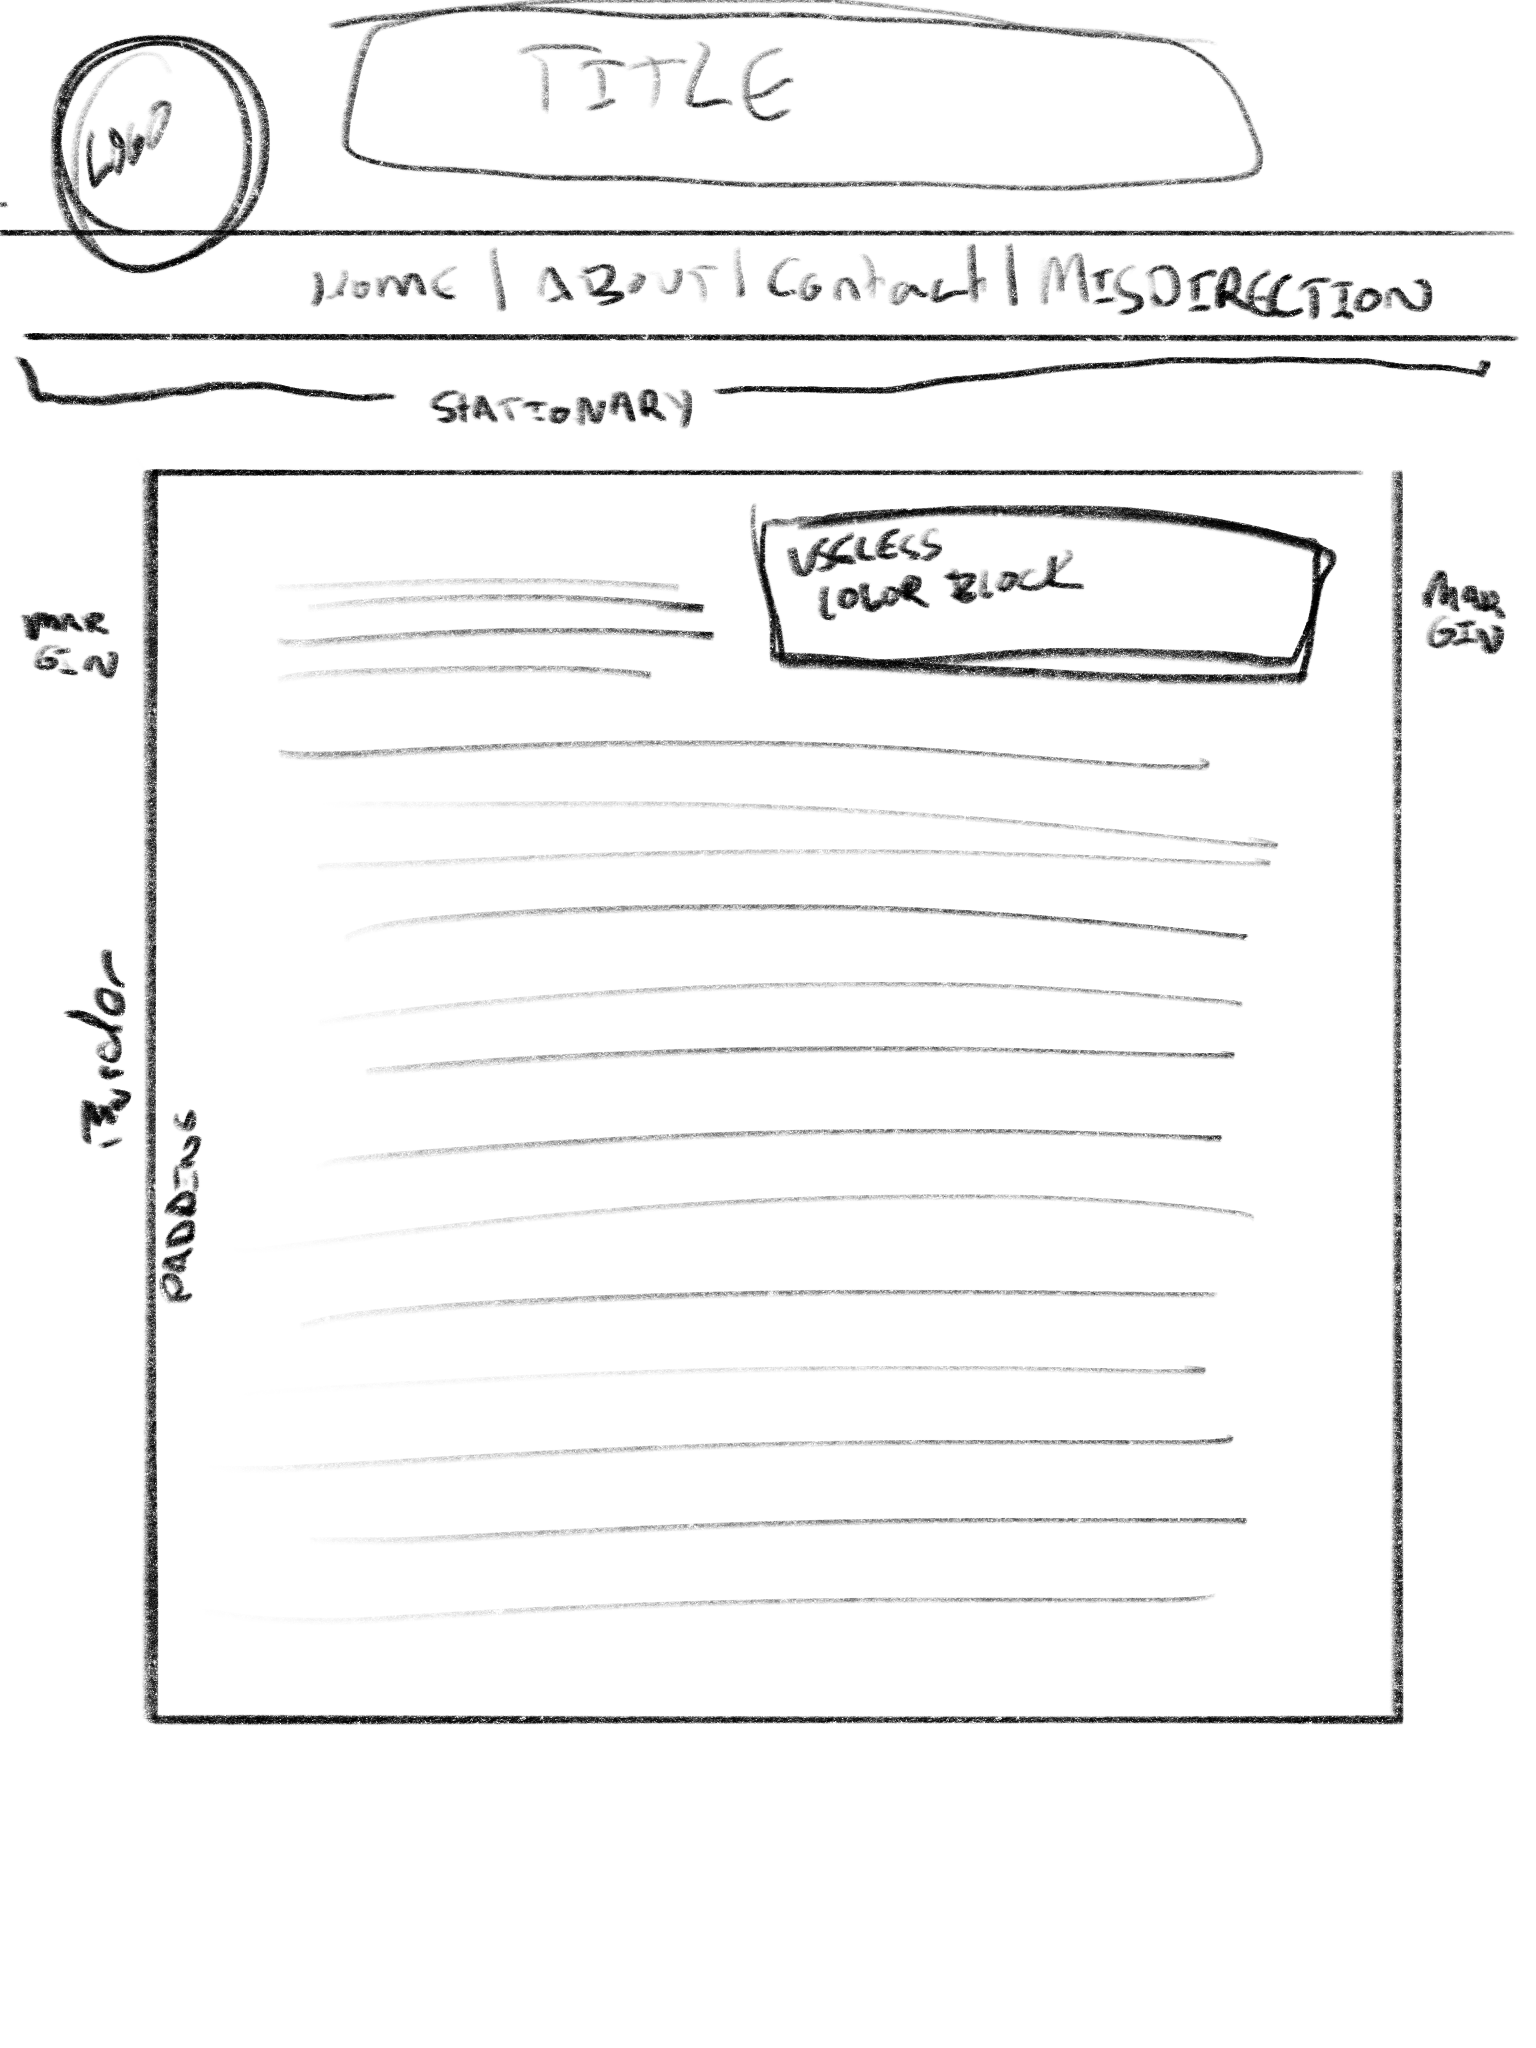 TITLE
LOGO
Home | ABOUT | Contact | MISDIRECTION
STATIONARY
USELESS
COLOR BLOCK
MAR
GIN
MAR
GIN
Border
PADDING